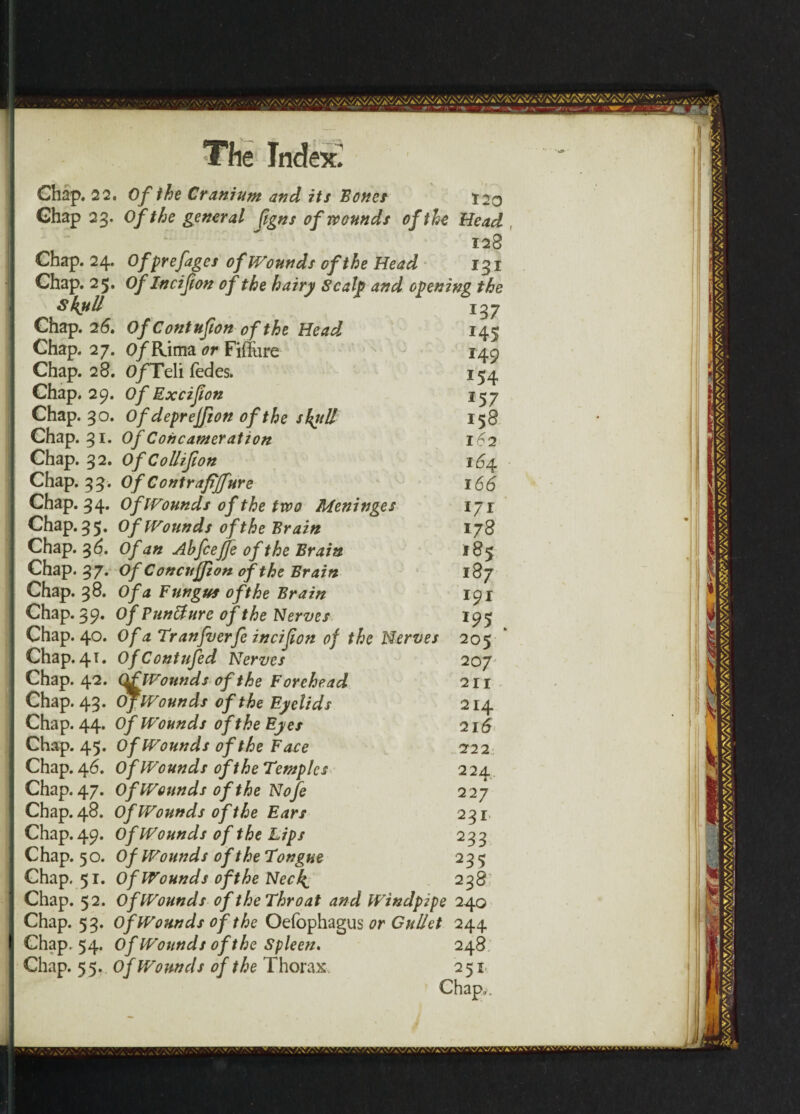 The Index.
Chap. 22. Of the Cranium and its Bones 120
Chap 23. Of the general ſigns of wounds of the Head,
128
Chap. 24. Of preſages of Wounds of the Head 131
Chap. 25. Of Inciſion of the hairy Scalp and opening the
Skull 137
Chap. 26. Of Contuſion of the Head 145
Chap. 27. Of Rima or Fiſſure 149
Chap. 28. Of Teli ſedes. 154
Chap. 29. Of Exciſion 157
Chap. 30. Of depreſſion of the skull 158
Chap. 31. Of Concameration 162
Chap. 32. Of Colliſion 164
Chap. 33. Of Contrafiſſure 166
Chap. 34. Of Wounds of the two Meninges 171
Chap. 35. Of Wounds of the Brain 178
Chap. 36. Of an Abſceſſe of the Brain 185
Chap. 37. Of Concuſſion of the Brain 187
Chap. 38. Of a Fungus of the Brain 191
Chap. 39. Of Puncture of the Nerves 195
Chap. 40. Of a Tranſverſe inciſion of the Nerves 205
Chap. 41. Of Contuſed Nerves 207
Chap. 42. Of Wounds of the Forehead 211
Chap. 43. Of Wounds of the Eyelids 214
Chap. 44. Of Wounds of the Eyes 216
Chap. 45. Of Wounds of the Face 222
Chap. 46. Of Wounds of the Temples 224
Chap. 47. Of Wounds of the Noſe 227
Chap. 48. Of Wounds of the Ears 231
Chap. 49. Of Wounds of the Lips 233
Chap. 50. Of Wounds of the Tongue 235
Chap. 51. Of Wounds of the Neck 238
Chap. 52. Of Wounds of the Throat and Windpipe 240
Chap. 53. Of Wounds of the Oeſophagus or Gullet 244
Chap. 54. Of Wounds of the Spleen. 248
Chap. 55. Of Wounds of the Thorax 251
Chap.